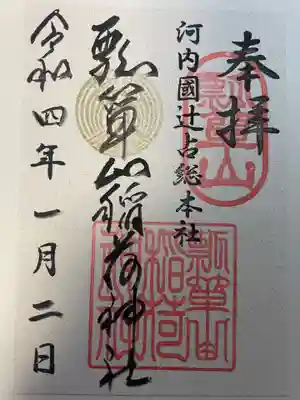 奉拝
瓢箪山
河内國辻占総本社
瓢箪山稲荷神社
瓢箪山稲荷神社
令和四年一月二日